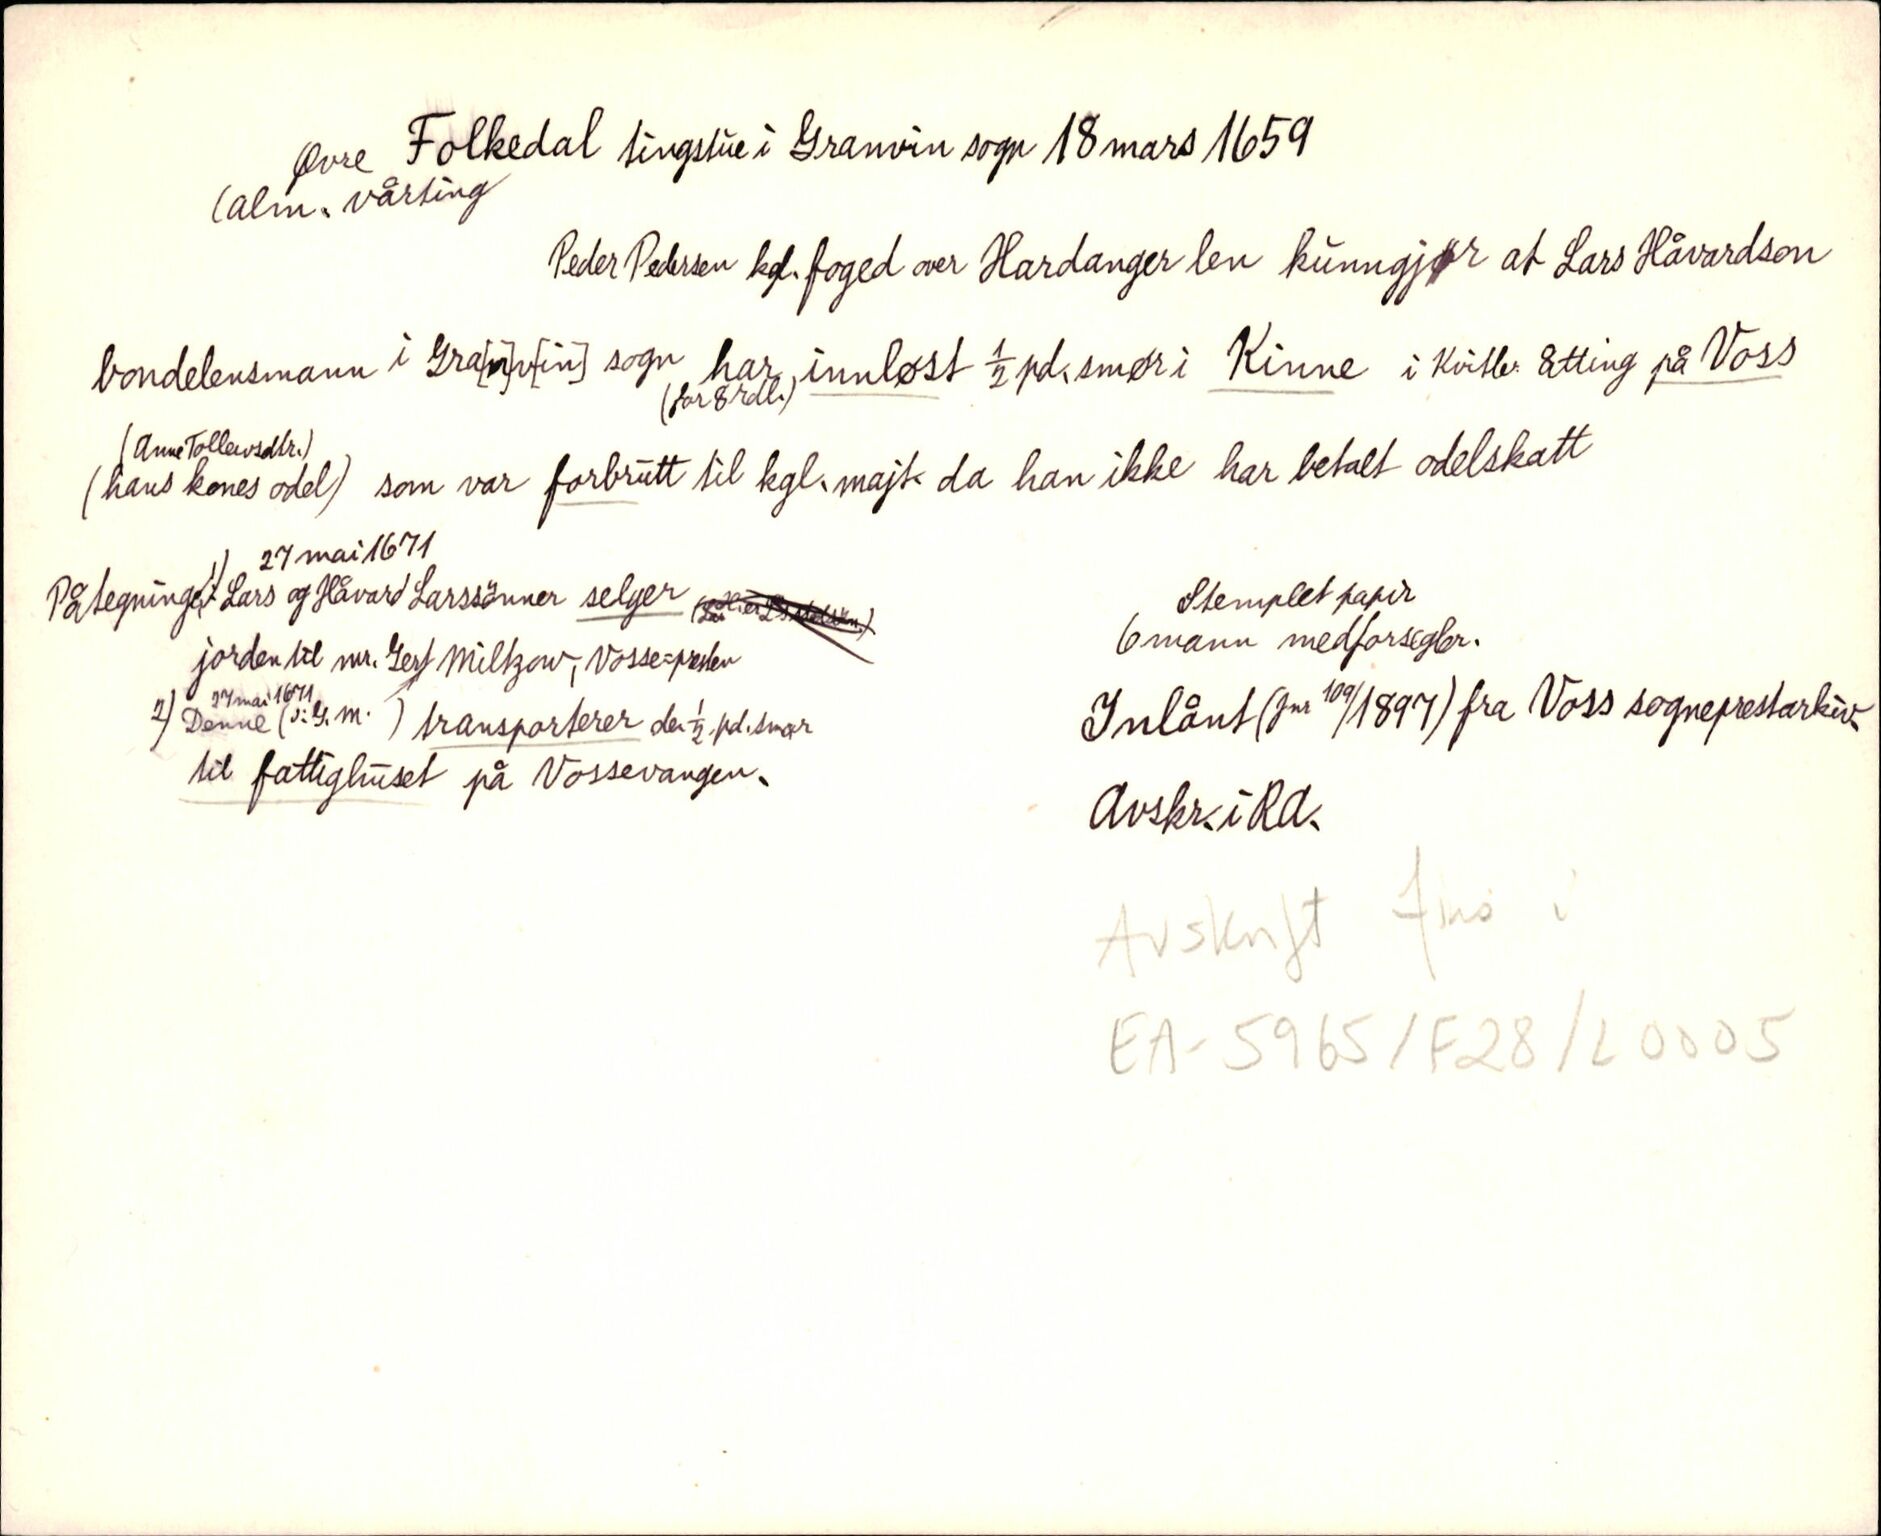 Øvre Folkedal tingstue i Granvin sogn 18 mars 1659
(alm. vårting
Peder Pedersen kgl. foged over Hardanger len kunngjør at Lars Håvardson
bondelensmann i Gra[n]v[in] sogn har innløst ½ pd. smør i Kinne i Kvitlr. åtting på Voss
(for 8 rdl.)
(Anne Tollevsdtr.)
(hans kones odel) som var forbrutt til kgl. majt. da han ikke har betalt odelskatt
1) 27 mai 1671
Påtegninger Lars og Håvard Larssönner selger
jorden til mr. Gert Miltzow, Vosse=presten
27 mai 1671
2) Denne (ɔ: G. M. ) transporterer de ½ pd. smør
til fattighuset på Vossevangen.
Stemplet papir
6 mann medforseglr.
Inlånt (Jnr 109/1897) fra Voss sogneprestarkiv.
Avskr. i RA.
Avskrift i
EA-5965/F28/L0005